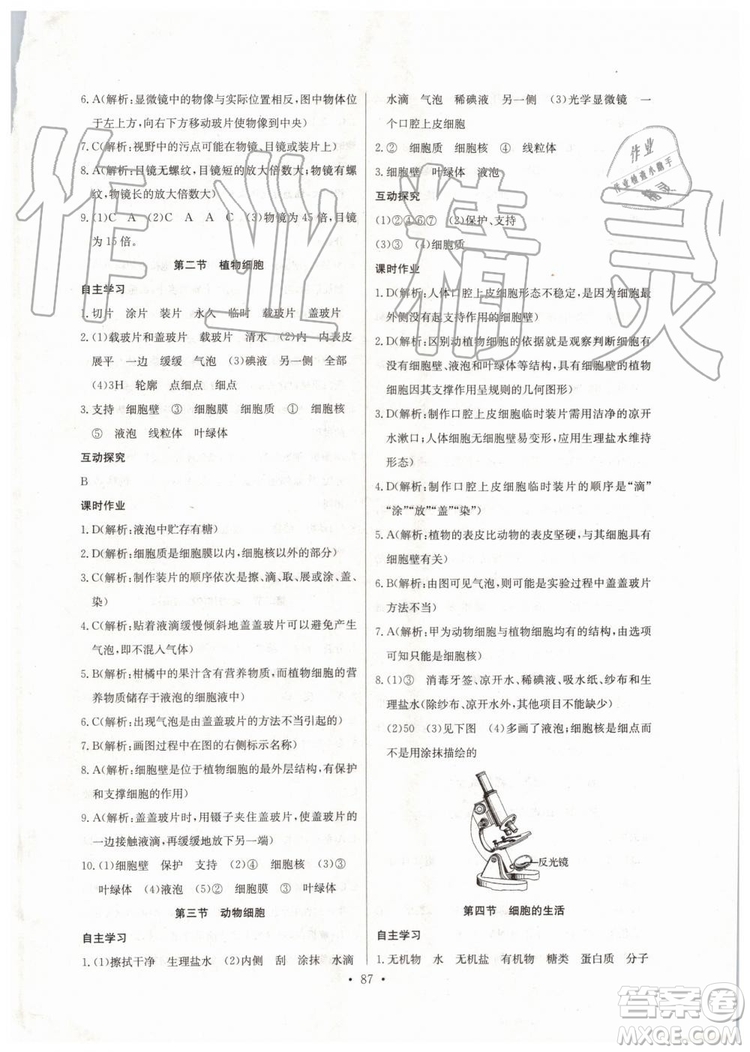 6. A(解析:显微镜中的物像与实际位置相反,图中物体位
于左上方,向右下方移动玻片使物像到中央)
7. C(解析:视野中的污点可能在物镜、目镜或装片上)
8. A(解析:目镜无螺纹,目镜短的放大倍数大;物镜有螺
纹,物镜长的放大倍数大)
9. (1)C A A C (2)物镜为 45 倍,目镜
为 15 倍。
第二节 植物细胞
自主学习
1. 切片 涂片 装片 永久 临时 载玻片 盖玻片
2. (1)载玻片和盖玻片 载玻片 清水 (2)内 内表皮
展平 一边 缓缓 气泡 (3)碘液 另一侧 全部
(4)3H 轮廓 点细点 细点
3. 支持 细胞壁 ③ 细胞膜 细胞质 ① 细胞核
⑤ 液泡 线粒体 叶绿体
互动探究
B
课时作业
1. D(解析:液泡中贮存有糖)
2. D(解析:细胞质是细胞膜以内、细胞核以外的部分)
3. C(解析:制作装片的顺序依次是擦、滴、取、展或涂、盖、
染)
4. C(解析:贴着液滴缓慢倾斜地盖盖玻片可以避免产生
气泡,即不混入气体)
5. D(解析:柑橘中的果汁含有营养物质,而植物细胞的营
养物质储存于液泡的细胞液中)
6. C(解析:出现气泡是由盖盖玻片的方法不当引起的)
7. B(解析:画图过程中在图的右侧标示名称)
8. A(解析:细胞壁是位于植物细胞最外层的结构,有保护
和支撑细胞的作用)
9. A(解析:盖盖玻片时,用镊子夹住盖玻片,使盖玻片的
一边接触液滴,再缓缓地放下另一端)
10. (1)细胞壁 保护 支持 (2)④ 细胞核 (3)③
叶绿体 (4)⑤ 液泡 (5)② 细胞膜 (6)③ 叶绿体
第三节 动物细胞
自主学习
1. (1)擦拭干净 生理盐水 (2)内侧 刮 涂抹 水滴
水滴 气泡 稀碘液 另一侧 (3)光学显微镜 一
个口腔上皮细胞
2. ② ① 细胞质 细胞核 ④ 线粒体
3. 细胞壁 叶绿体 液泡
互动探究
(1)①②④⑥⑦ (2)保护、支持
(3)③ (4)细胞质
课时作业
1. D(解析:人体口腔上皮细胞形态不稳定,是因为细胞最
外侧没有起支持作用的细胞壁)
2. D(解析:区别动植物细胞的依据就是观察判断细胞有
无细胞壁、液泡和叶绿体等结构,具有细胞壁的植物细
胞因其支撑作用呈规则的几何图形)
3. D(解析:制作口腔上皮细胞临时装片需用洁净的凉开
水漱口;人体细胞无细胞壁易变形,应用生理盐水维持
形态)
4. D(解析:制作口腔上皮细胞临时装片的顺序是“滴”
“涂”“放”“盖”“染”)
5. A(解析:植物的表皮比动物的表皮坚硬,与其具有细胞
壁有关)
6. D(解析:由图可见气泡,应是实验过程中盖盖玻片
方法不当)
7. A(解析:甲为动物细胞与植物细胞均有的结构,由供选
可知只能是细胞核)
8. (1)③ 消毒牙签、凉开水、稀碘液、吸水纸、纱布和生
理盐水(除纱布、凉开水外,其他不能缺少)
(2)50 (3)见下图 (4)多画了液泡;细胞核是细点而
不是用涂抹描绘的
反光镜
第四节 细胞的生活
自主学习
1. 无机物 水 无机盐 有机物 糖类 蛋白质 分子
· 87 ·
作业精灵
作业
作业检查小助手
精灵
答案圈
MXQE.COM